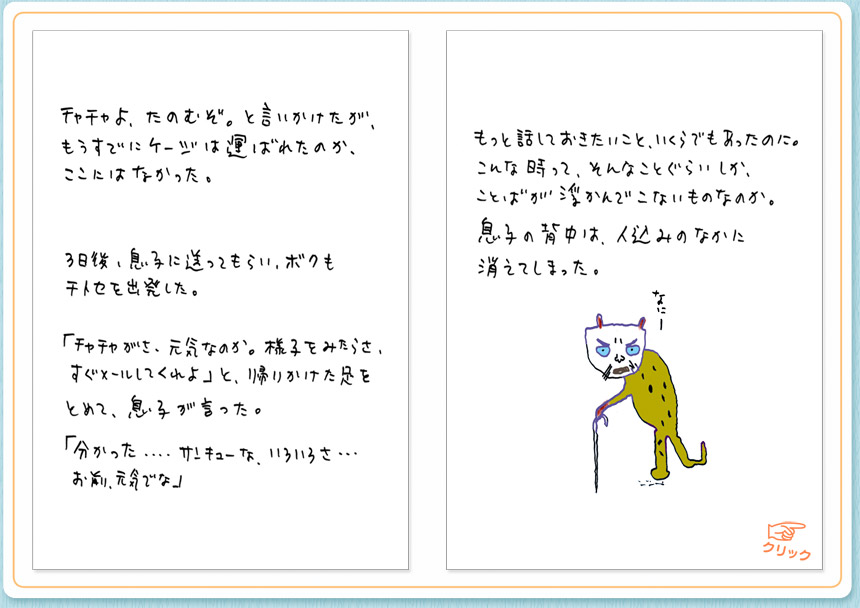 チャチャよ、たのむぞ。と言いかけたが、
もうすでにケージは運ばれたのか、
ここにはなかった。
3日後、息子に送ってもらい、ボクも
チトセを出発した。
「チャチャがさ、元気なのか。様子をみたらさ、
すぐメールしてくれよ」と、帰りかけた足を
とめて、息子が言った。
「分かった‥‥サンキューな、いろいろさ…
お前、元気でな」
もっと話しておきたいこと、いくらでもあったのに。
こんな時って、そんなことぐらいしか、
ことばが浮かんでこないものなのか。
息子の背中は、人込みのなかに
消えてしまった。
なにー
クリック